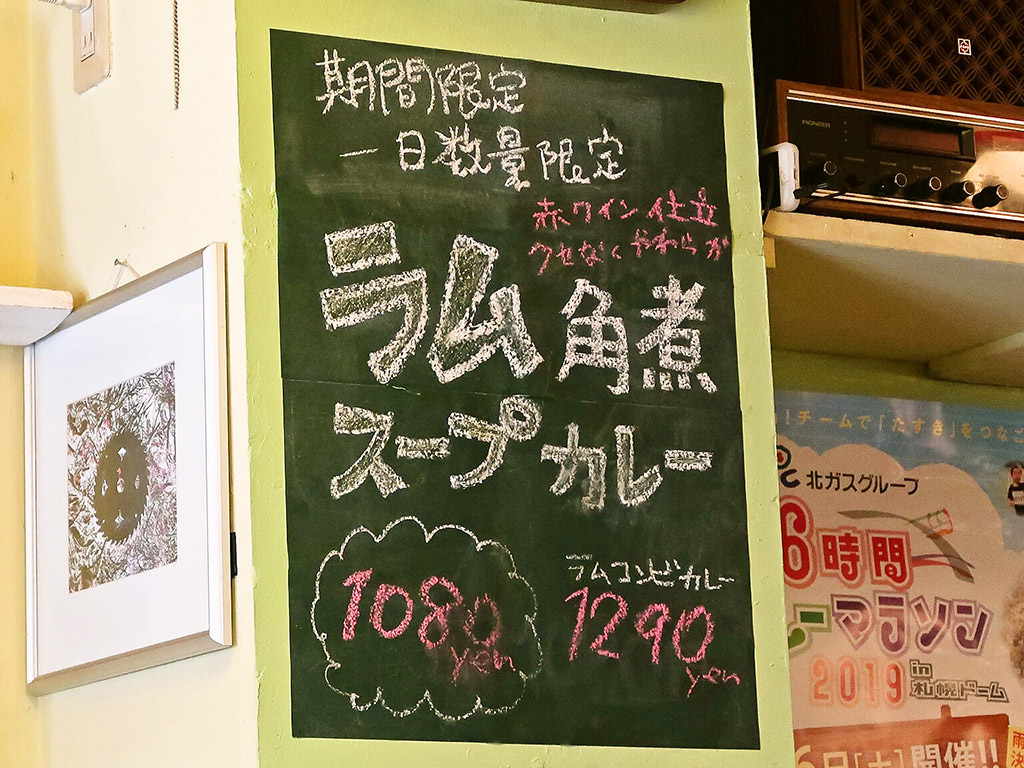 期間限定
一日数量限定
赤ワイン仕立
クセなくやわらか
ラム角煮
スープカレー
1080
yen
ラムコンビカレー
1290
yen
PIONEER
！チームで「たすき」をつなご
北ガスグループ
6時間
レーマラソン
2019 in 札幌ドーム
6日[土]開催!!